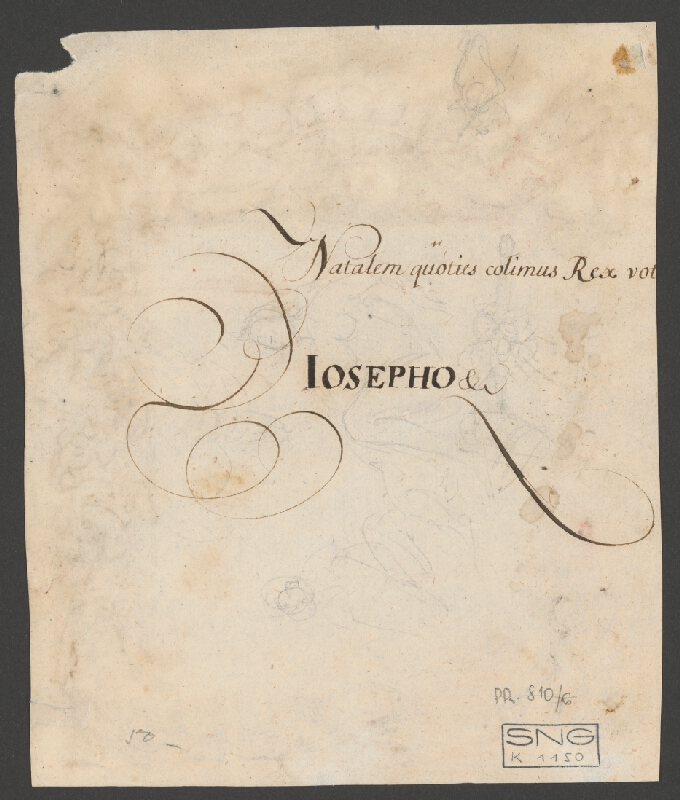 Natalem quoties colimus Rex vot
IOSEPHO &
PR. 810/6
SNG
K 1150
50 –